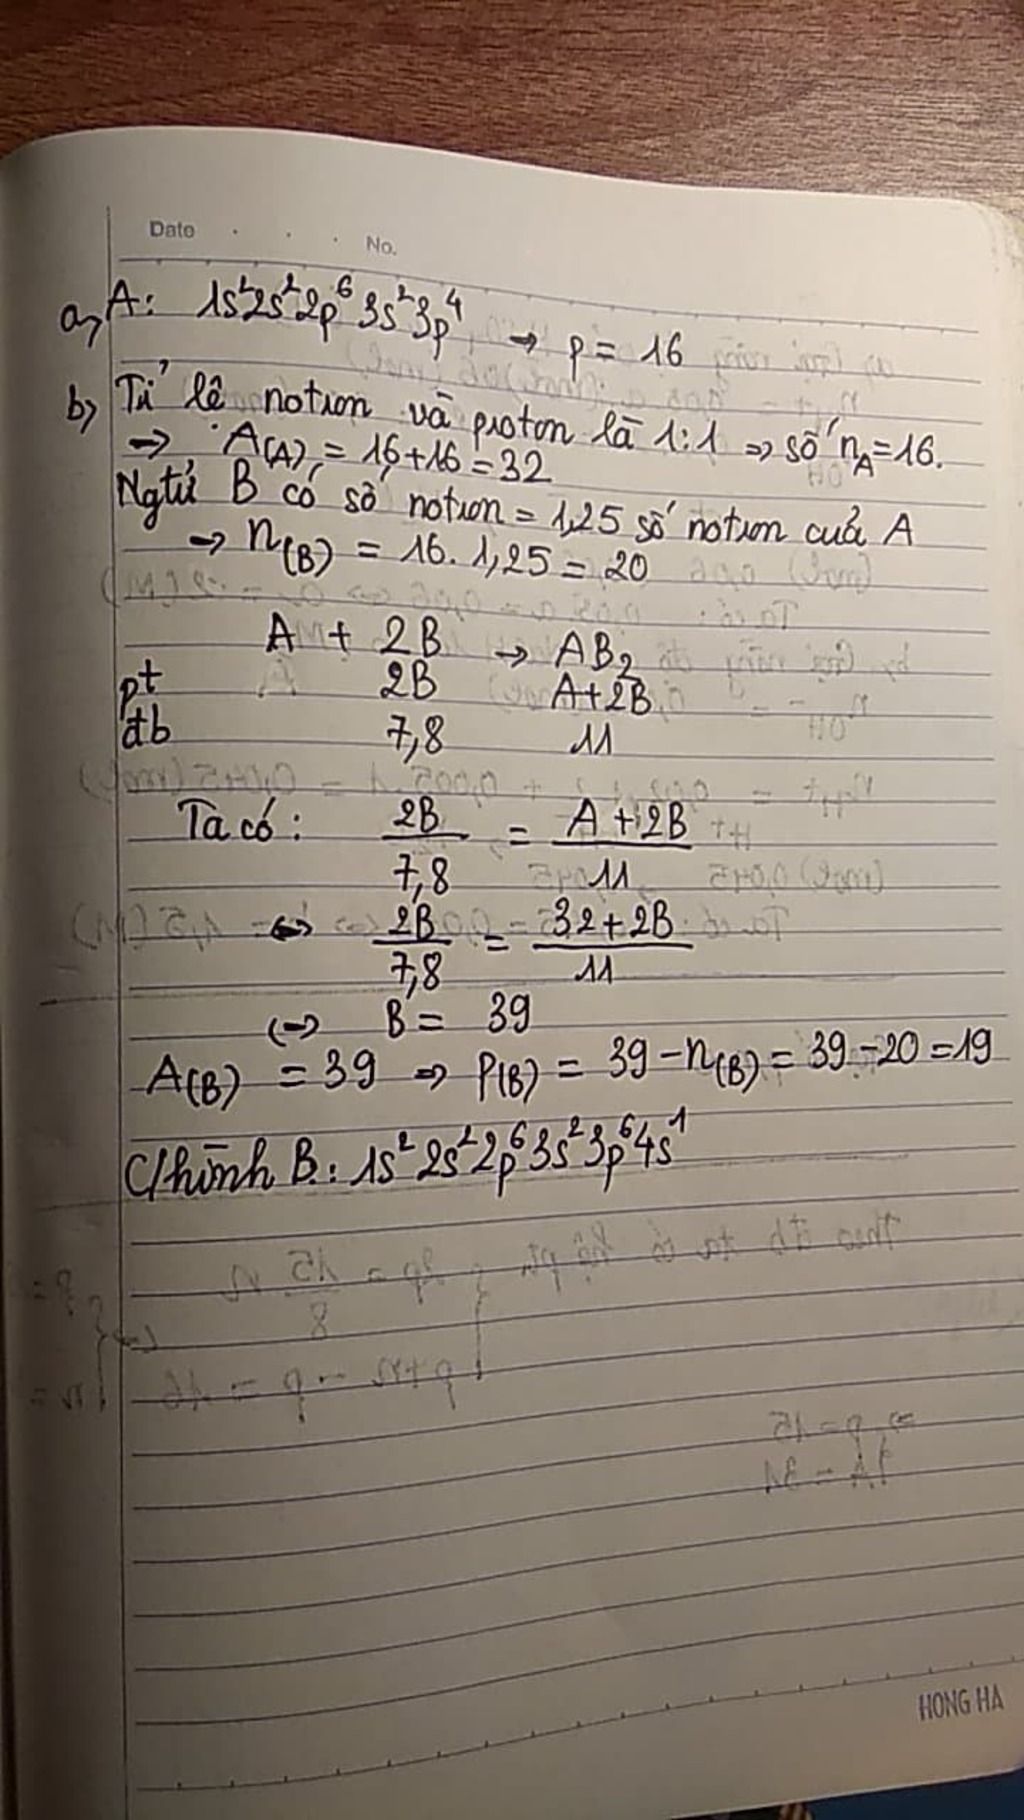 Date . . . No.
a, A: 1s²2s²2p⁶3s²3p⁴ → p = 16
b, Tỉ lệ notron và proton là 1:1 ⇒ số n_A = 16.
→ A(A) = 16+16 = 32
Ngtử B có số notron = 1,25 số notron của A
→ n(B) = 16. 1,25 = 20
A + 2B → AB₂
pt 2B A+2B
đb 7,8 11
Ta có: 2B/7,8 = A+2B/11
⇔ 2B/7,8 = 32+2B/11
⇔ B = 39
A(B) = 39 ⇒ P(B) = 39 - n(B) = 39 - 20 = 19
C/hình B: 1s²2s²2p⁶3s²3p⁶4s¹
HONG HA